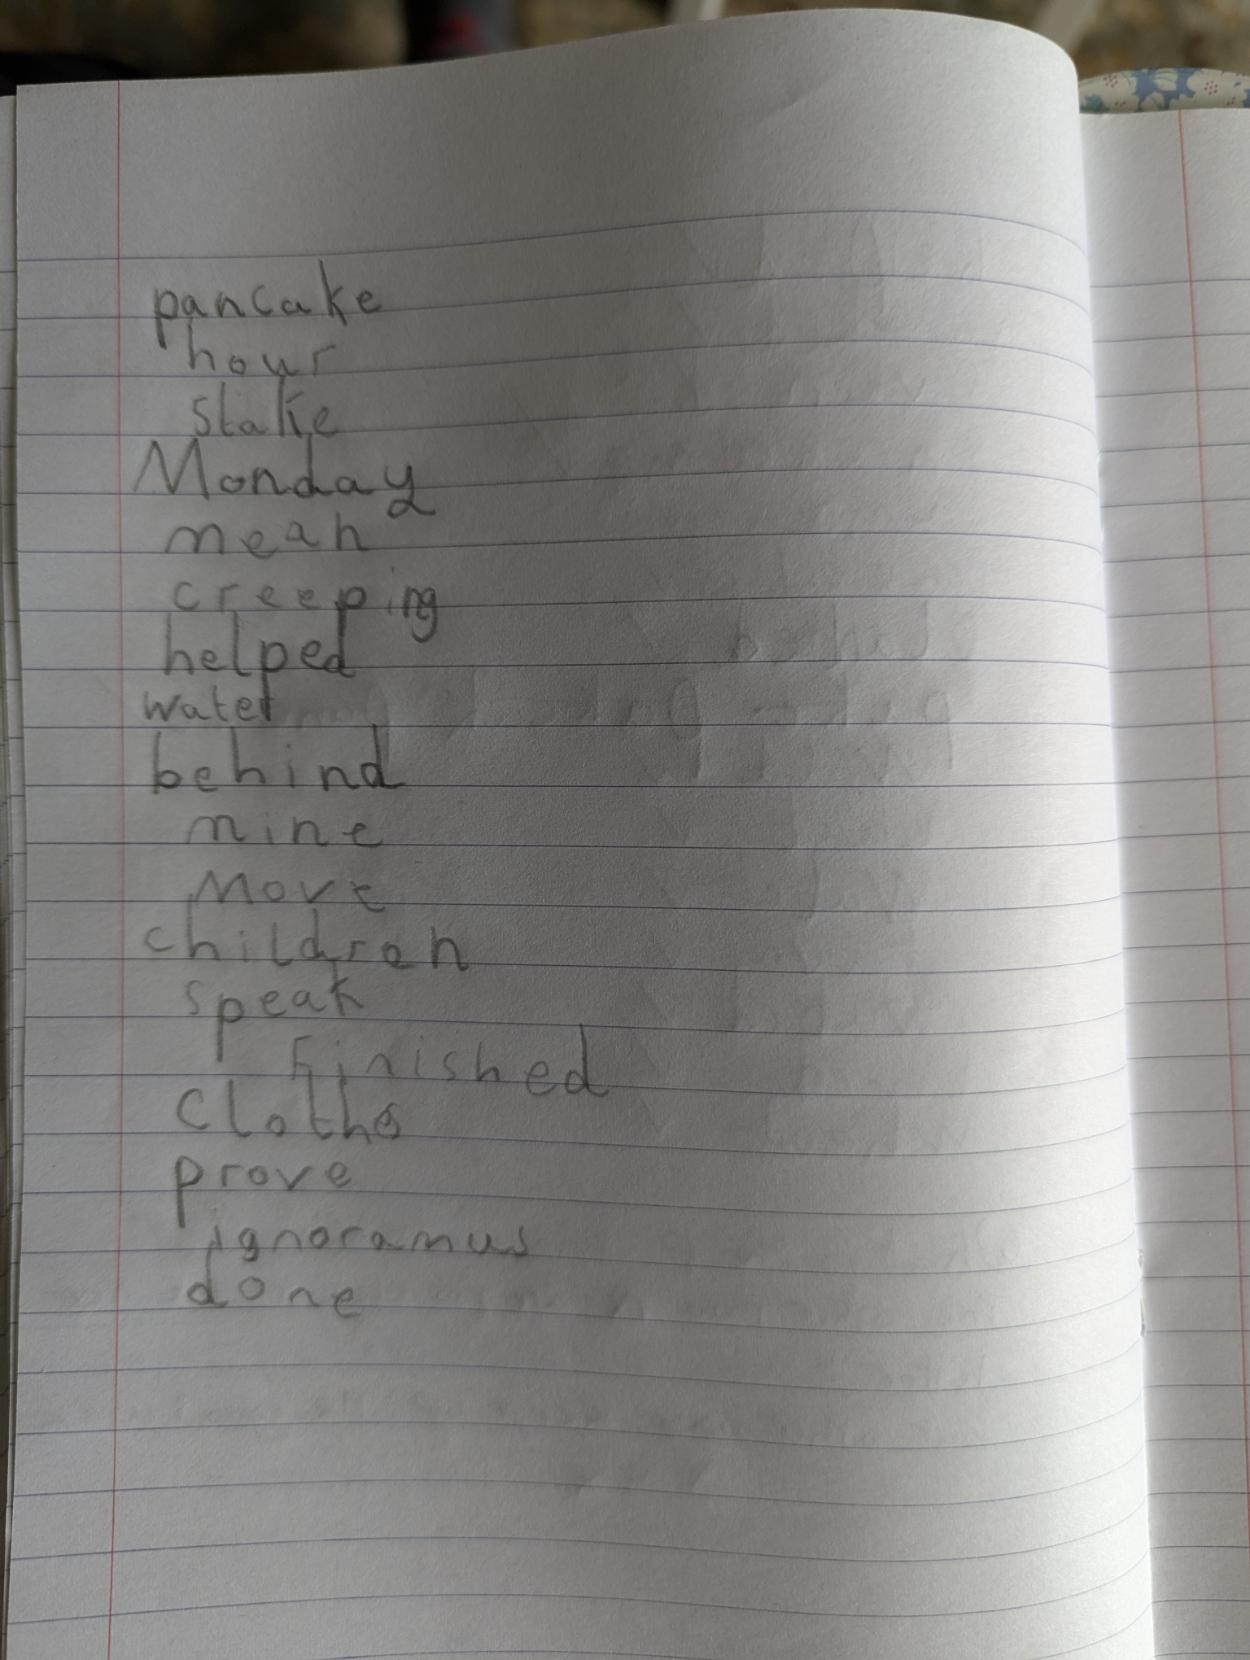 pancake
hour
stake
Monday
mean
creeping
helped
water
behind
mine
Move
children
speak
Finished
Cloths
prove
ignoramus
done